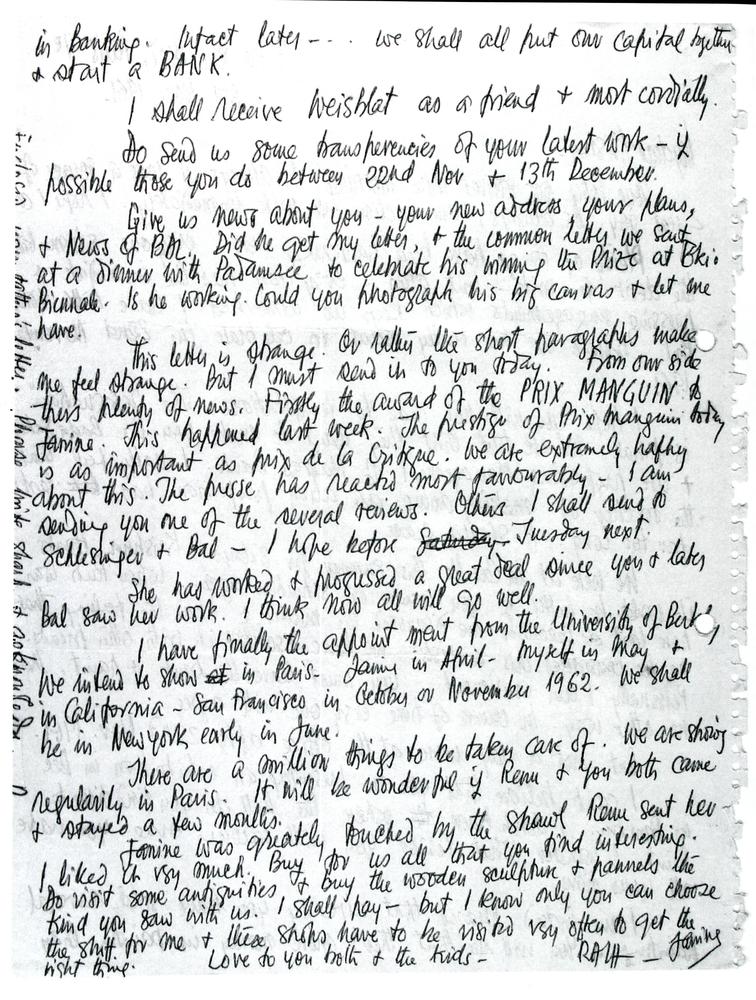 in Banking. Infact later --- we shall all put our capital together
& start a BANK.
I shall receive Weisblat as a friend & most cordially.
Do send us some transperencies of your latest work - if
possible those you do between 22nd Nov & 13th December.
Give us news about you - your new address, your plans,
& News of BAL. Did he get my letter, & the common letter we sent
at a dinner with Padamsee to celebrate his winning the Prize at
Biennale. Is he working. Could you photograph his big canvas & let me
have.
This letter is strange. Or rather the short paragraphs make
me feel strange. But I must send in to you today. From our side
thers plenty of news. Firstly the award of the PRIX MANGUIN to
Janine. This happened last week. The prestige of Prix manguin today
is as important as prix de la Critique. We are extremely happy
about this. The presse has reacted most favourably - I am
sending you one of the several reviews. Others I shall send to
Schlesinger & Bal - I hope before Saturday Tuesday next.
She has worked & progressed a great deal since you & later
Bal saw her work. I think now all will go well.
I have finally the appointment from the University of
We intend to show in Paris - Janine in April - myself in May &
in California - San Francisco in October or November 1962. We shall
be in New York early in June.
There are a million things to be taken care of. We are showing
regularily in Paris. It will be wonderful if Renu & you both came
& stayed a few months.
Janine was greately touched by the shawl Renu sent her -
I liked it vry much. Buy for us all that you find interesting.
Do visit some antiquities & buy the wooden sculpture & pannels the
kind you saw with us. I shall pay - but I know only you can choose
the stuff for me & these shops have to be visited vry often to get the
right thing.
Love to you both & the kids - RAZA - Janine